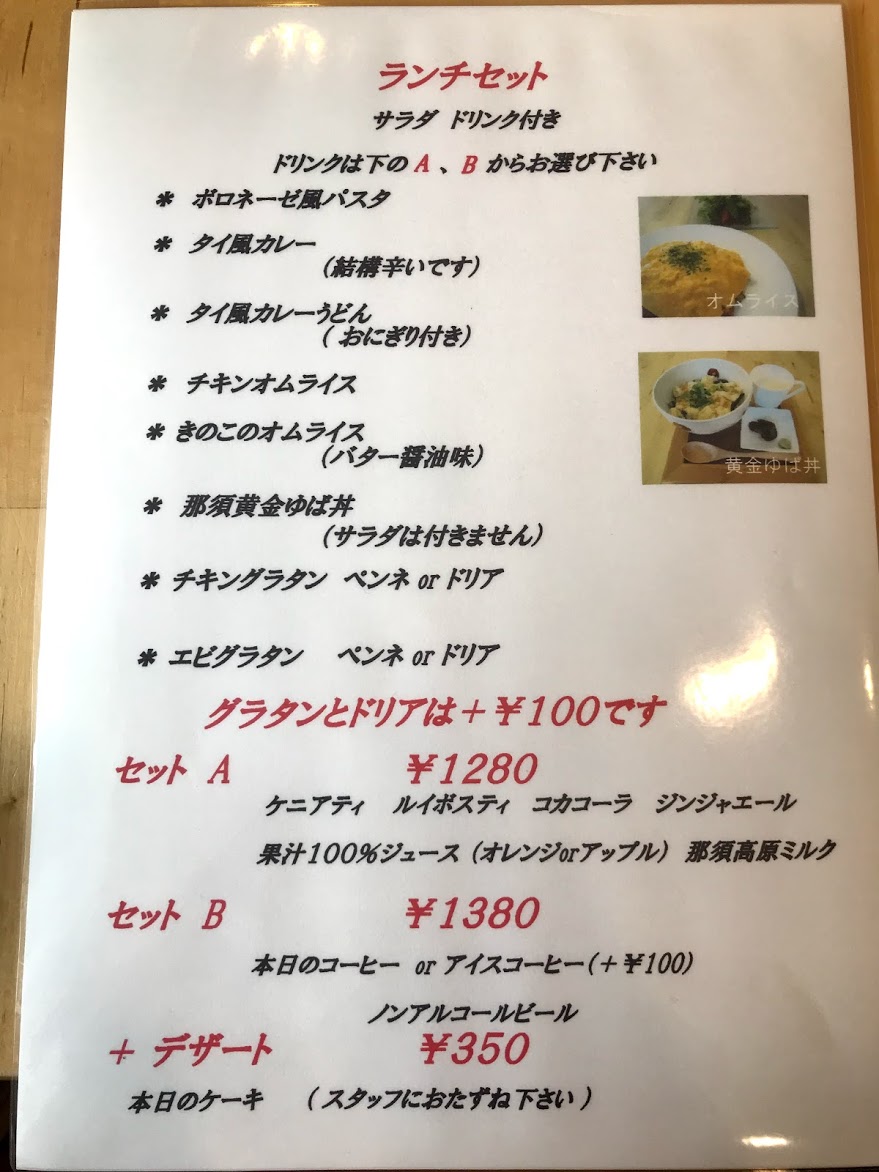 ランチセット
サラダ ドリンク付き
ドリンクは下の A 、 B からお選び下さい
＊ ボロネーゼ風パスタ
＊ タイ風カレー
（結構辛いです）
＊ タイ風カレーうどん
（ おにぎり付き）
＊ チキンオムライス
＊ きのこのオムライス
（バター醤油味）
＊ 那須黄金ゆば丼
（サラダは付きません）
＊ チキングラタン ペンネ or ドリア
＊ エビグラタン ペンネ or ドリア
オムライス
黄金ゆば丼
グラタンとドリアは＋￥100です
セット A ￥1280
ケニアティ ルイボスティ コカコーラ ジンジャエール
果汁100％ジュース（オレンジorアップル） 那須高原ミルク
セット B ￥1380
本日のコーヒー or アイスコーヒー（＋￥100）
ノンアルコールビール
＋ デザート ￥350
本日のケーキ （スタッフにおたずね下さい）